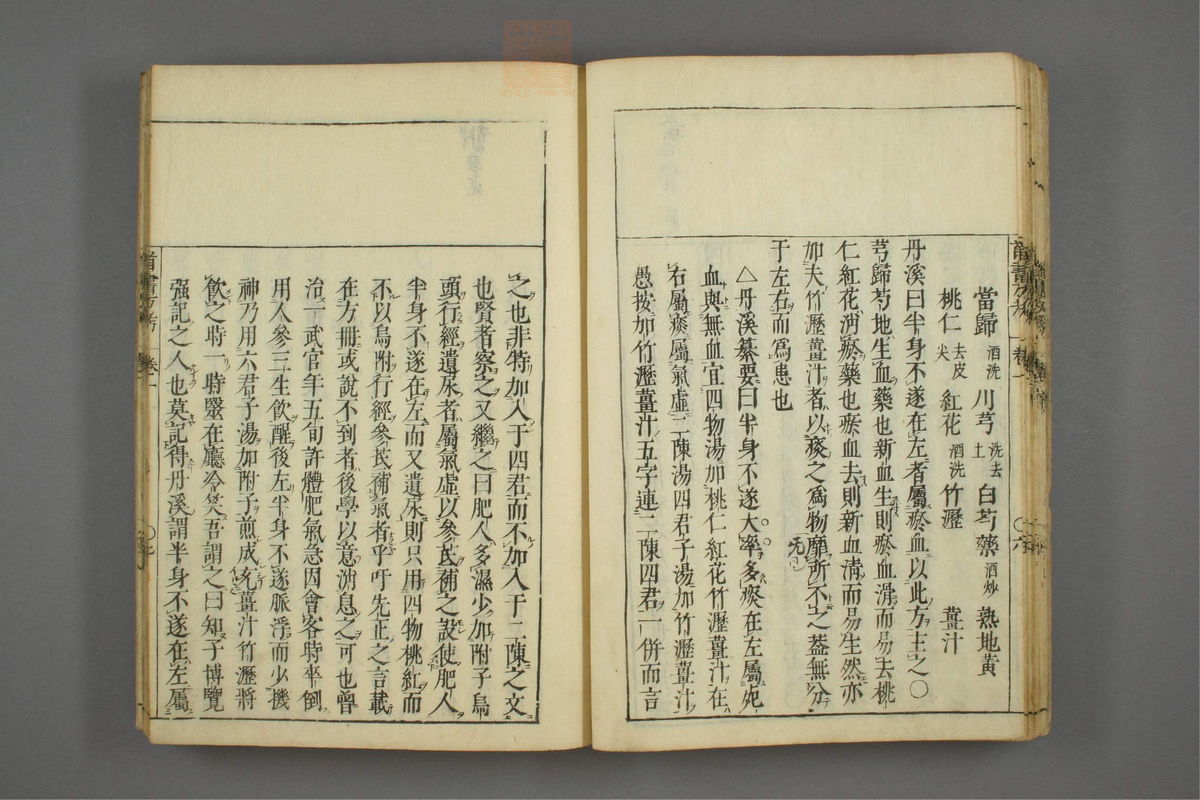 當歸酒洗 川芎洗去土 白芍藥酒炒 熟地黃
桃仁去皮尖 紅花酒洗 竹瀝 薑汁
丹溪曰半身不遂在左者屬瘀血以此方主之○
芎歸芍地生血藥也新血生則瘀血滑而易去桃
仁紅花消瘀藥也瘀血去則新血清而易生然亦
加夫竹瀝薑汁者以痰之爲物靡所不之蓋無分
于左右而爲患也
△丹溪纂要曰半身不遂大率多痰在左屬死
血與無血宜四物湯加桃仁紅花竹瀝薑汁在
右屬痰屬氣虛二陳湯四君子湯加竹瀝薑汁
愚按加竹瀝薑汁五字連二陳四君一併而言
之也非特加入于四君而不加入于二陳之文
也賢者察之又繼之曰肥人多濕少加附子烏
頭行經遺尿者屬氣虛以參芪補之設使肥人
半身不遂在左而又遺尿則只用四物桃紅而
不以烏附行經參芪補氣者乎吁先正之言載
在方冊或說不到者後學以意消息之可也曾
治一武官年五旬許體肥氣急因會客時卒倒
用人參三生飲醒後左半身不遂脈浮而少機
神乃用六君子湯加附子煎成充薑汁竹瀝將
飲之時一時醫在廳冷笑吾謂之曰知子博覽
强記之人也莫記得丹溪謂半身不遂在左屬